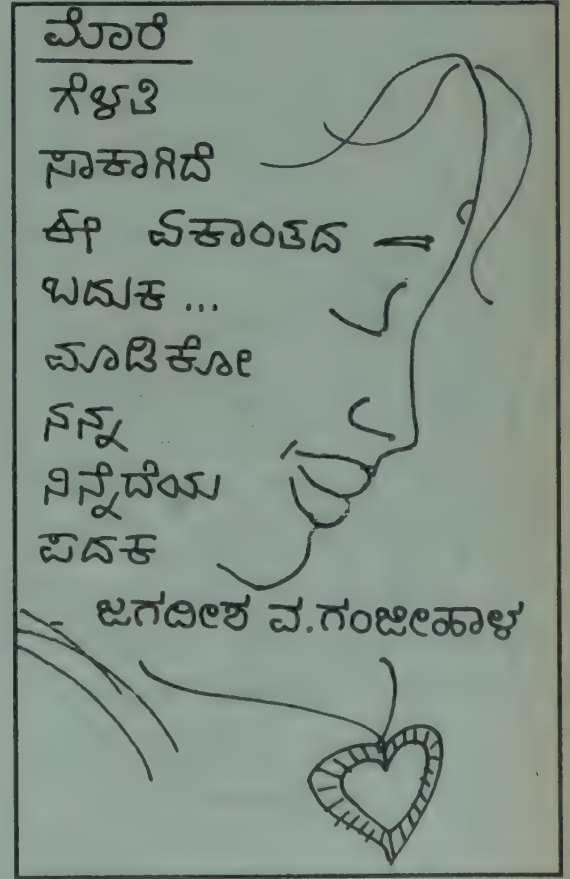 ಮೊರೆ
ಗೆಳತಿ
ಸಾಕಾಗಿದೆ
ಈ ಏಕಾಂತದ
ಬದುಕ ...
ಮಾಡಿಕೋ
ನನ್ನ
ನಿನ್ನೆದೆಯ
ಪದಕ
ಜಗದೀಶ ವ.ಗಂಜೀಹಾಳ